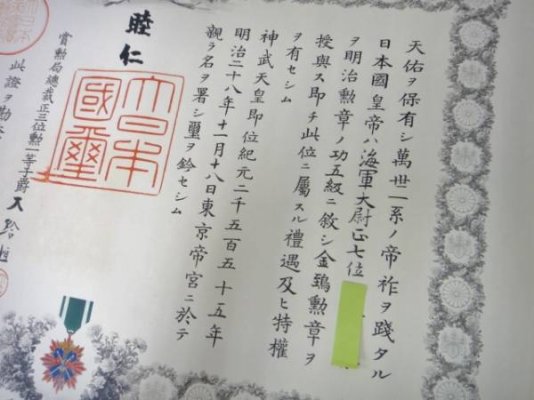 天佑ヲ保有シ萬世一系ノ帝祚ヲ踐タル
日本國皇帝ハ海軍大尉正七位
ヲ明治勲章ノ功五級ニ敘シ金鵄勲章ヲ
授與ス即チ此位ニ屬スル禮遇及ヒ特權
ヲ有セシム
神武天皇即位紀元二千五百五十五年
明治二十八年十一月十八日東京帝宮ニ於テ
親ラ名ヲ署シ璽ヲ鈐セシム
睦仁
大日本國璽
賞勲局總裁正三位勲一等子爵大給恒
此證ヲ勘査